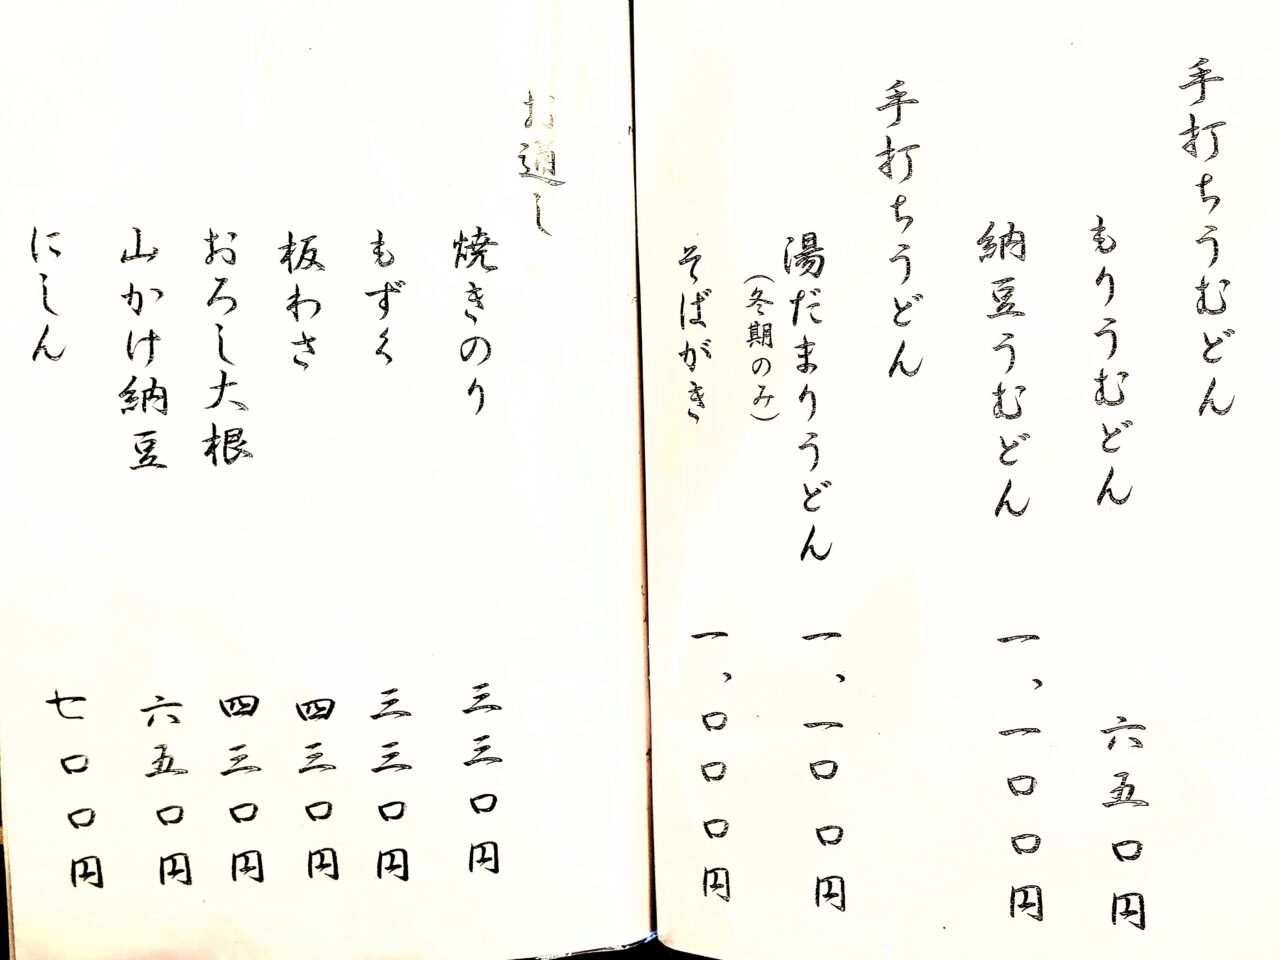 手打ちうむどん
もりうむどん 六五〇円
納豆うむどん 一、一〇〇円
手打ちうどん
湯だまりうどん 一、一〇〇円
（冬期のみ）
そばがき 一、〇〇〇円
お通し
焼きのり 三三〇円
もずく 三三〇円
板わさ 四三〇円
おろし大根 四三〇円
山かけ納豆 六五〇円
にしん 七〇〇円